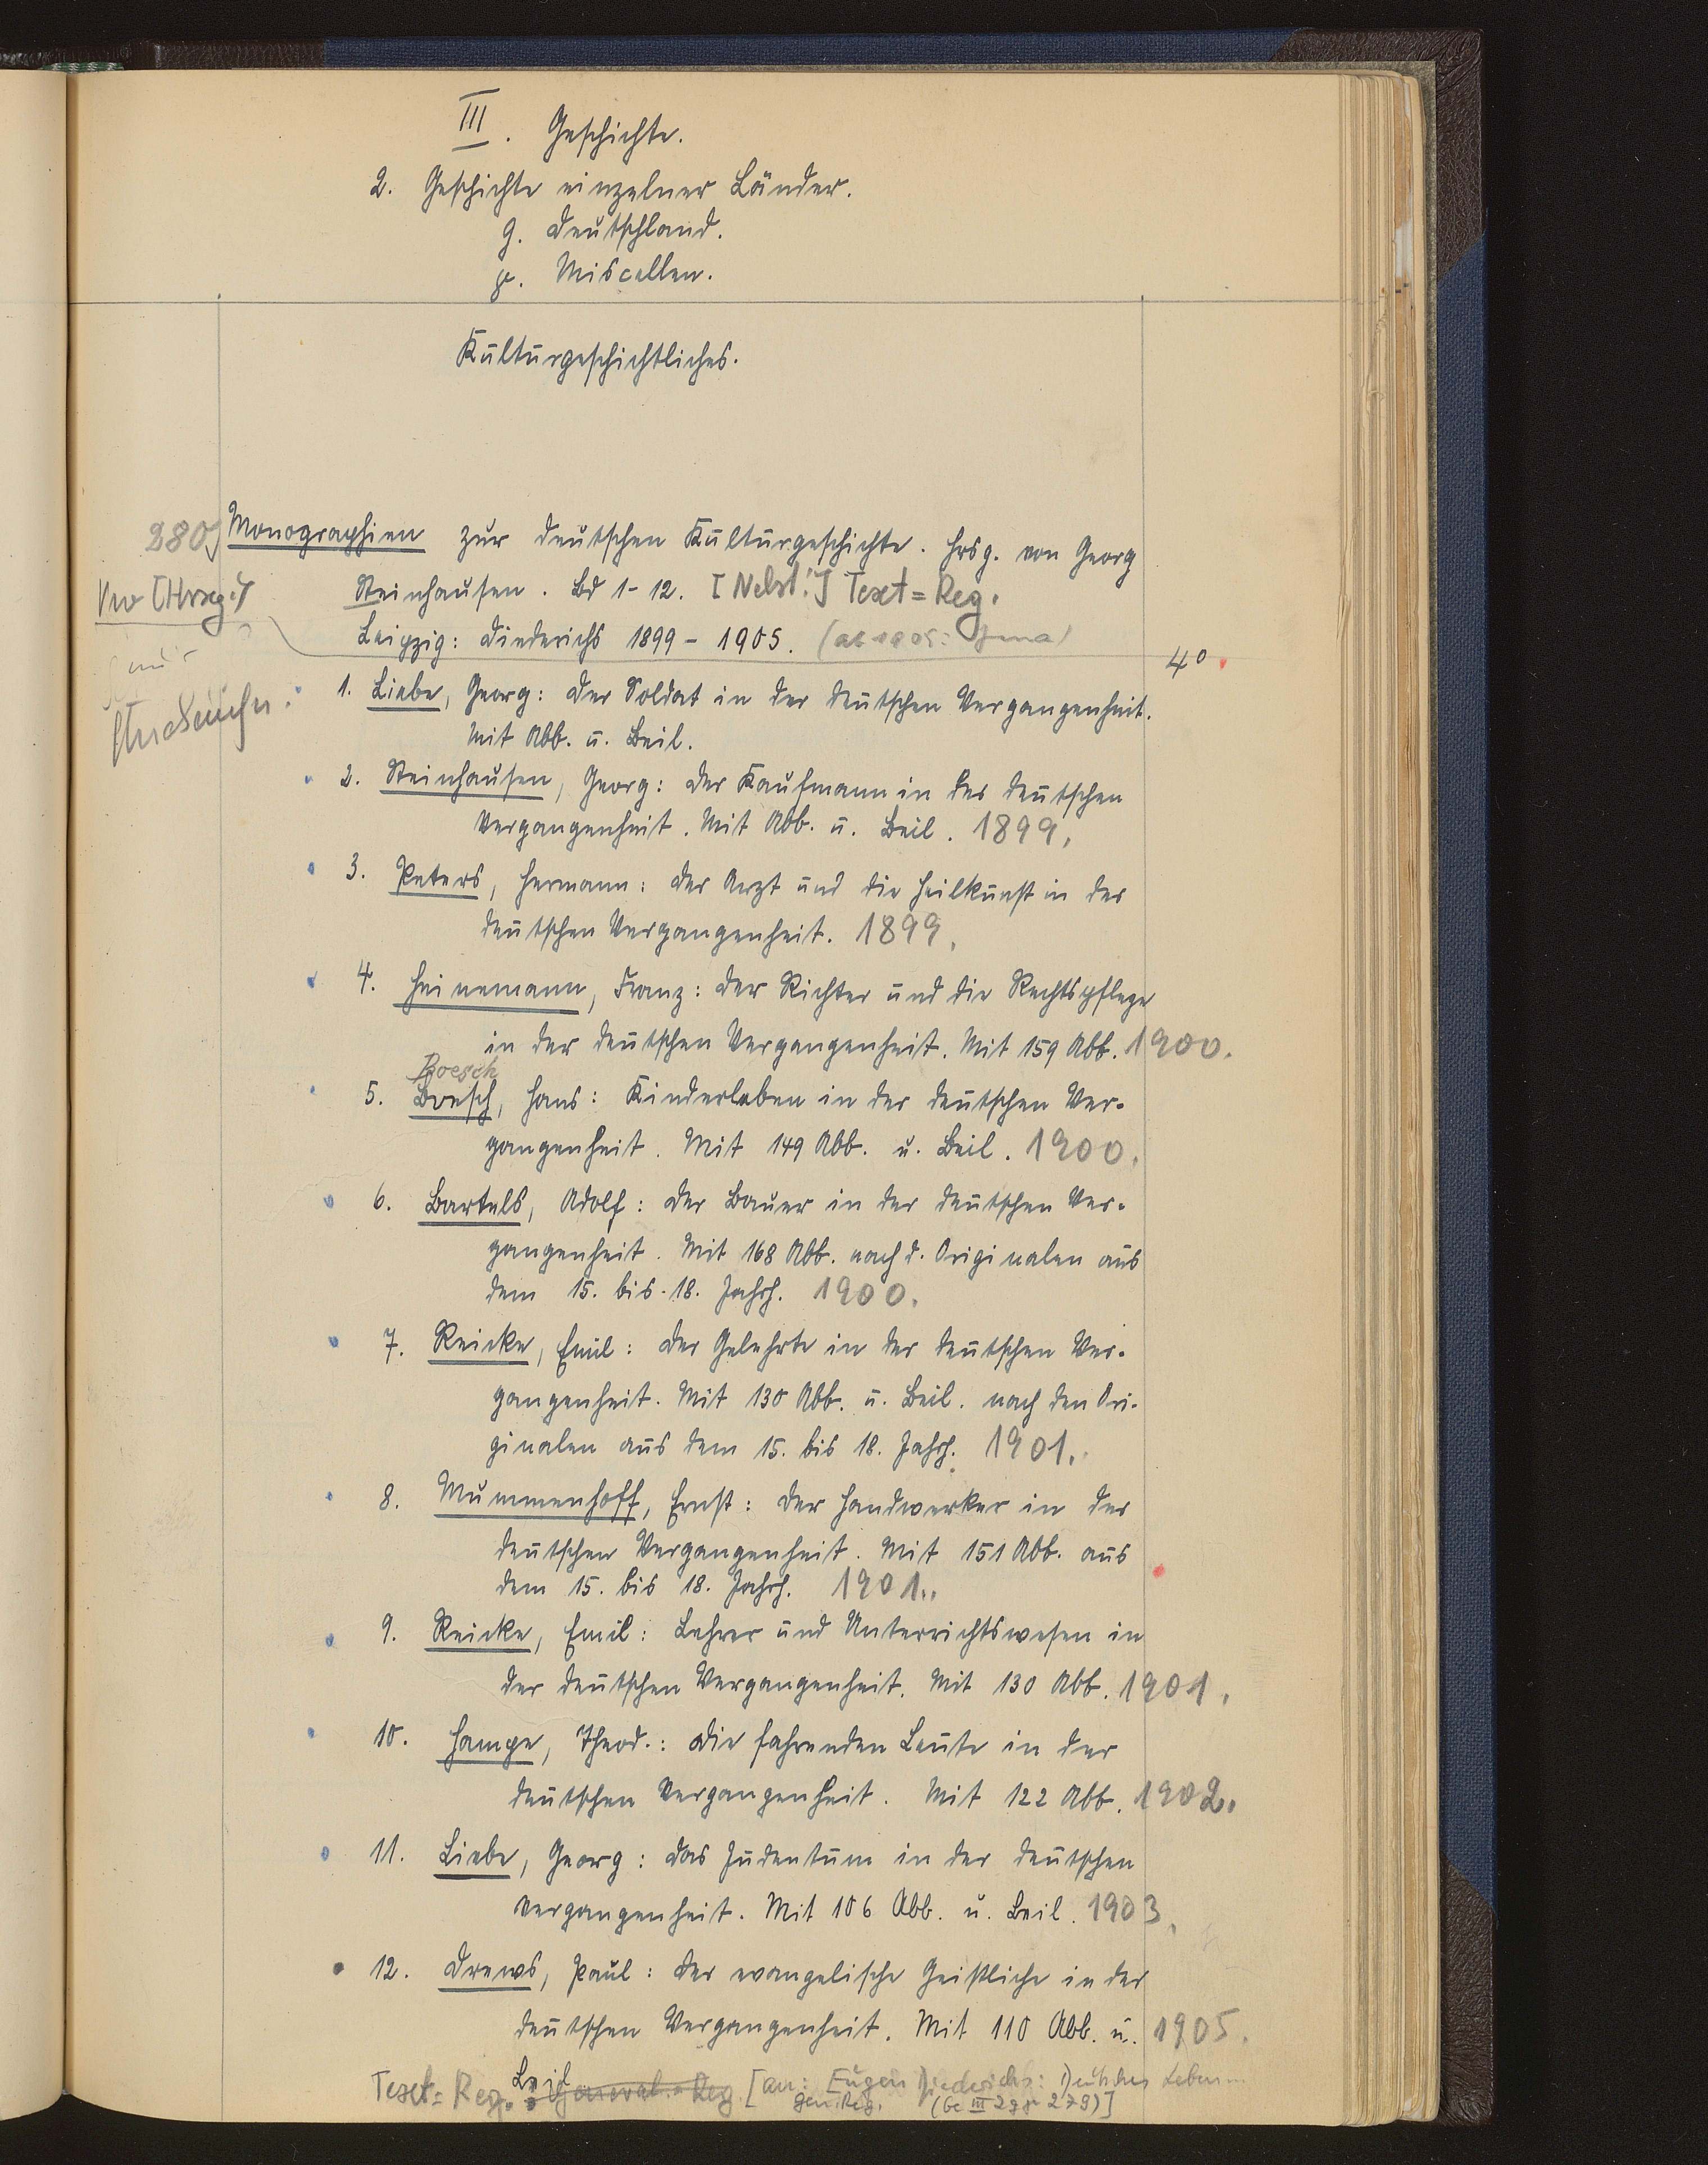 III. Geschichte.
2. Geschichte einzelner Länder.
g. Deutschland.
γ. Miscellen.
Kulturgeschichtliches.
280 Monographien zur deutschen Kulturgeschichte. Hrsg. von Georg
Steinhausen. Bd 1-12. [Nebst:] Text=Reg.
Vw [Hrsg:]
Leipzig: Diederichs 1899-1905. (ab 1905: Jena)
4°
1. Liebe, Georg: Der Soldat in der deutschen Vergangenheit.
Mit Abb. u. Beil.
2. Steinhausen, Georg: Der Kaufmann in der deutschen
Vergangenheit. Mit Abb. u. Beil. 1899.
3. Peters, Hermann: Der Arzt und die Heilkunst in der
deutschen Vergangenheit. 1899.
4. Heinemann, Franz: Der Richter und die Rechtspflege
in der deutschen Vergangenheit. Mit 159 Abb. 1900.
Boesch
5. Boesch, Hans: Kinderleben in der deutschen Ver-
gangenheit. Mit 149 Abb. u. Beil. 1900.
6. Bartels, Adolf: Der Bauer in der deutschen Ver-
gangenheit. Mit 168 Abb. nach d. Originalen aus
dem 15. bis 18. Jahrh. 1900.
7. Reicke, Emil: Der Gelehrte in der deutschen Ver-
gangenheit. Mit 130 Abb. u. Beil. nach den Ori-
ginalen aus dem 15. bis 18. Jahrh. 1901.
8. Mummenhoff, Ernst: Der Handwerker in der
deutschen Vergangenheit. Mit 151 Abb. aus
dem 15. bis 18. Jahrh. 1901.
9. Reicke, Emil: Lehrer und Unterrichtswesen in
der deutschen Vergangenheit. Mit 130 Abb. 1901.
10. Hampe, Theod.: Die fahrenden Leute in der
deutschen Vergangenheit. Mit 122 Abb. 1902.
11. Liebe, Georg: Das Judentum in der deutschen
Vergangenheit. Mit 106 Abb. u. Beil. 1903.
12. Drews, Paul: Der evangelische Geistliche in der
deutschen Vergangenheit. Mit 110 Abb. u. 1905.
Beil
Text=Reg.: General=Reg. [an: Eugen Diederichs: Deutsches Leben...
Gen. Reg. (Ge III 2gγ 279)]